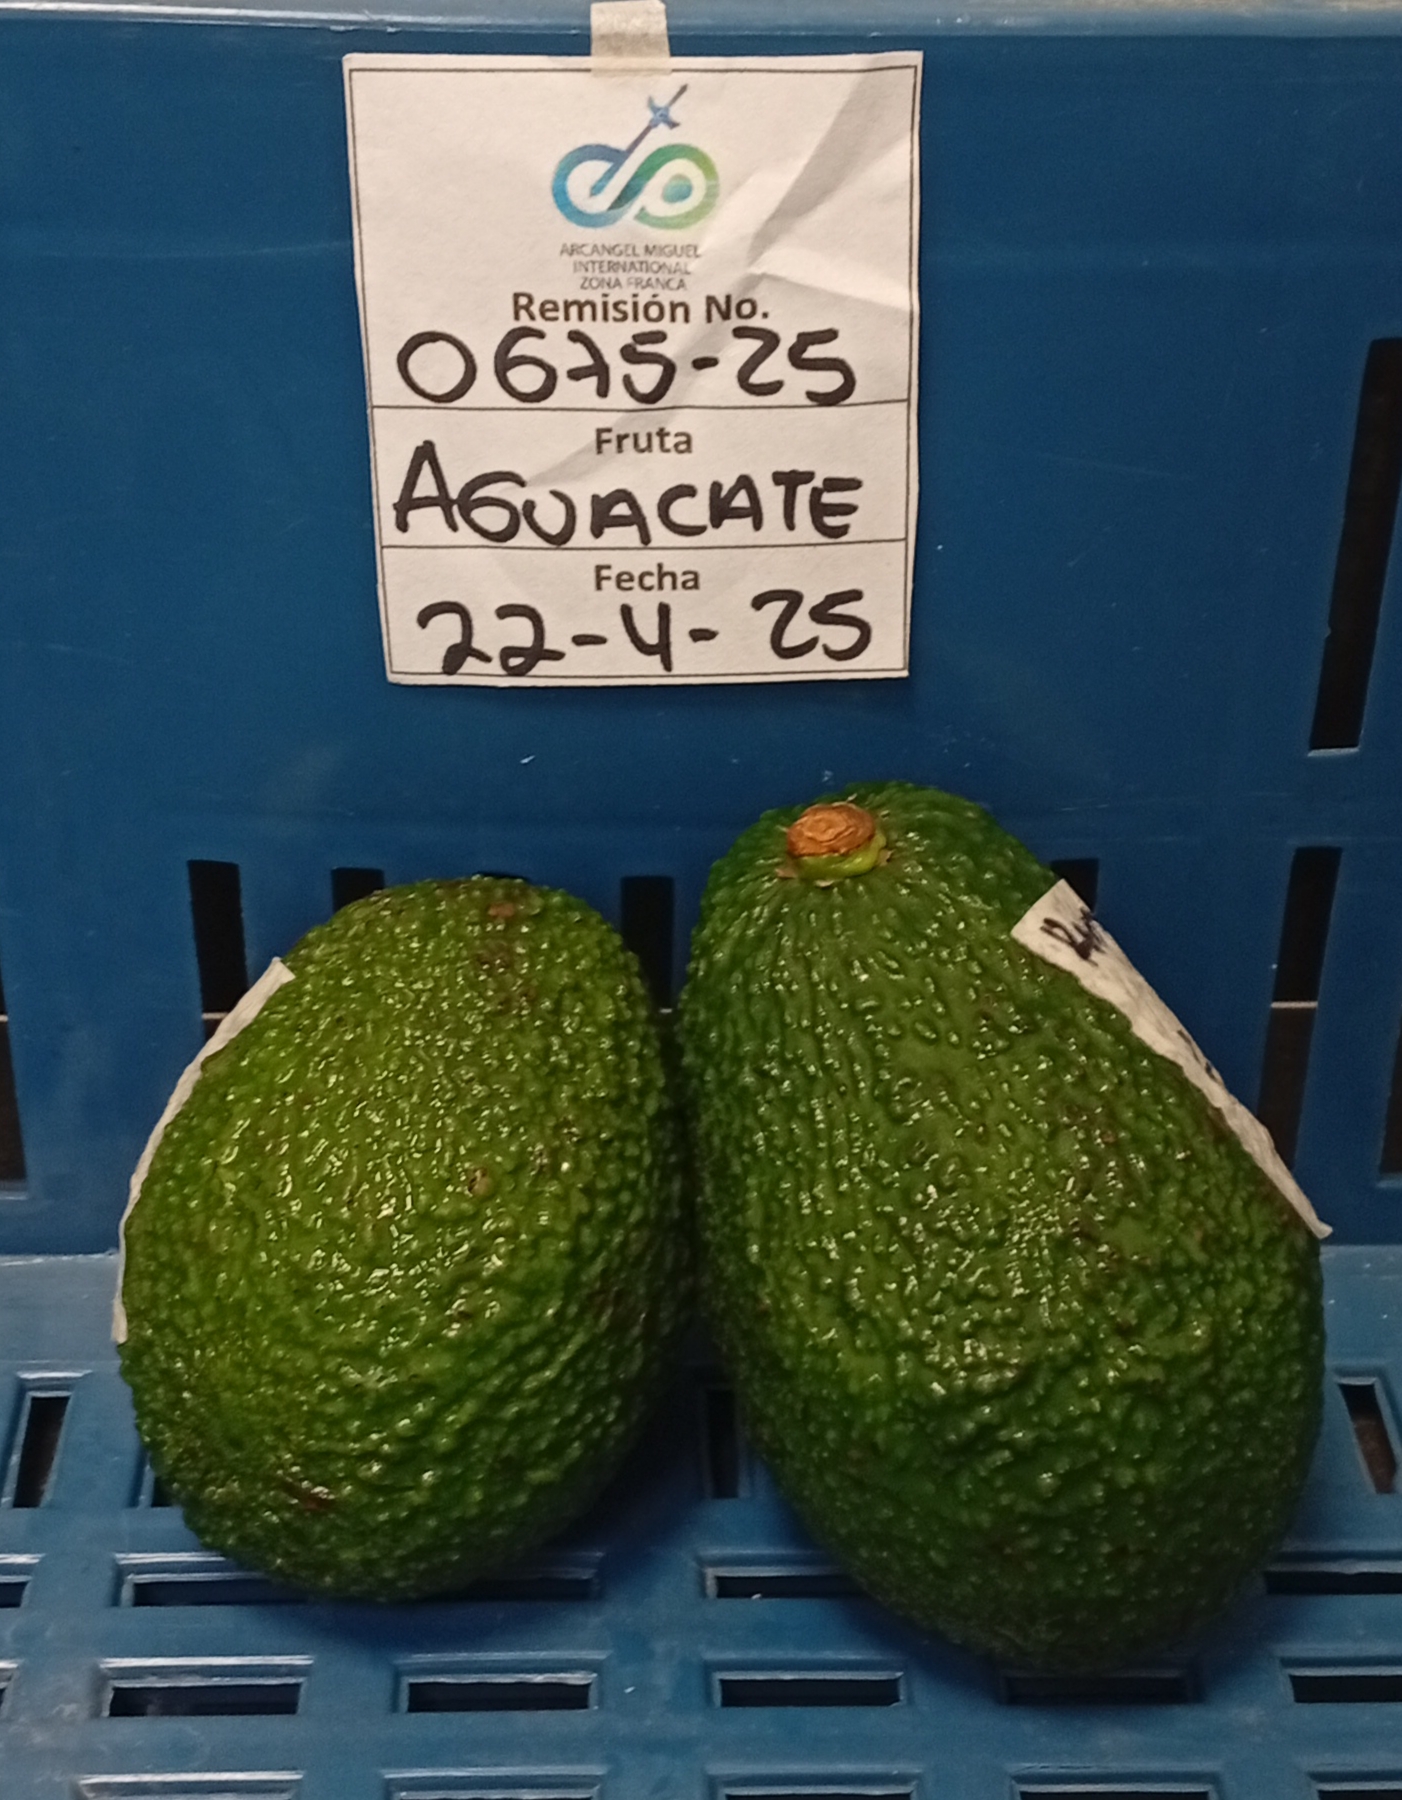 ARCANGEL MIGUEL
INTERNATIONAL
ZONA FRANCA
Remisión No.
0675-25
Fruta
AGUACATE
Fecha
22-4-25